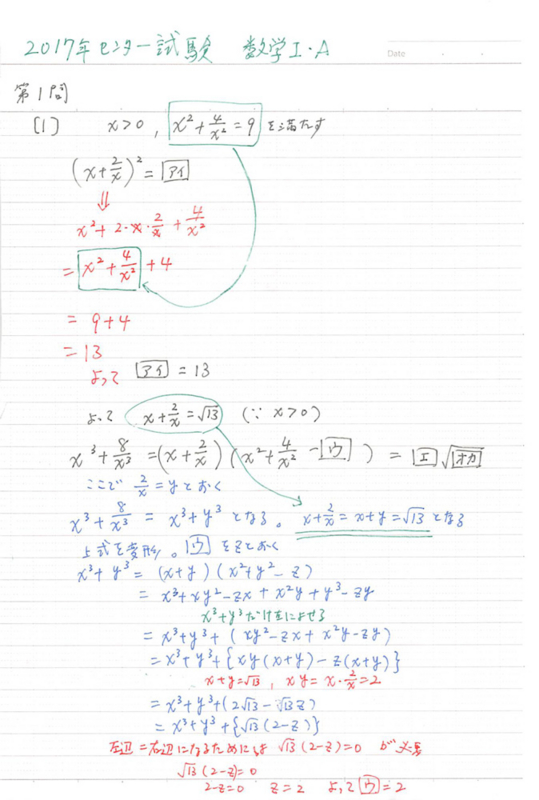 2017年センター試験 数学I・A
Date
第1問
〔1〕 x>0, x²+4/x²=9 を満たす
(x+2/x)²=アイ
⇓
x²+2・x・2/x+4/x²
=x²+4/x²+4
=9+4
=13
よって アイ=13
よって x+2/x=√13 (∵ x>0)
x³+8/x³=(x+2/x)(x²+4/x²-ウ)=エ√オカ
ここで 2/x=yとおく
x³+8/x³=x³+y³となる。 x+2/x=x+y=√13となる
上式を変形。ウをzとおく
x³+y³=(x+y)(x²+y²-z)
=x³+xy²-zx+x²y+y³-zy
x³+y³だけ左によせる
=x³+y³+(xy²-zx+x²y-zy)
=x³+y³+{xy(x+y)-z(x+y)}
x+y=√13, xy=x・2/x=2
=x³+y³+(2√13-√13z)
=x³+y³+{√13(2-z)}
左辺=右辺になるためには √13(2-z)=0 が必要
√13(2-z)=0
2-z=0 z=2 よって ウ=2